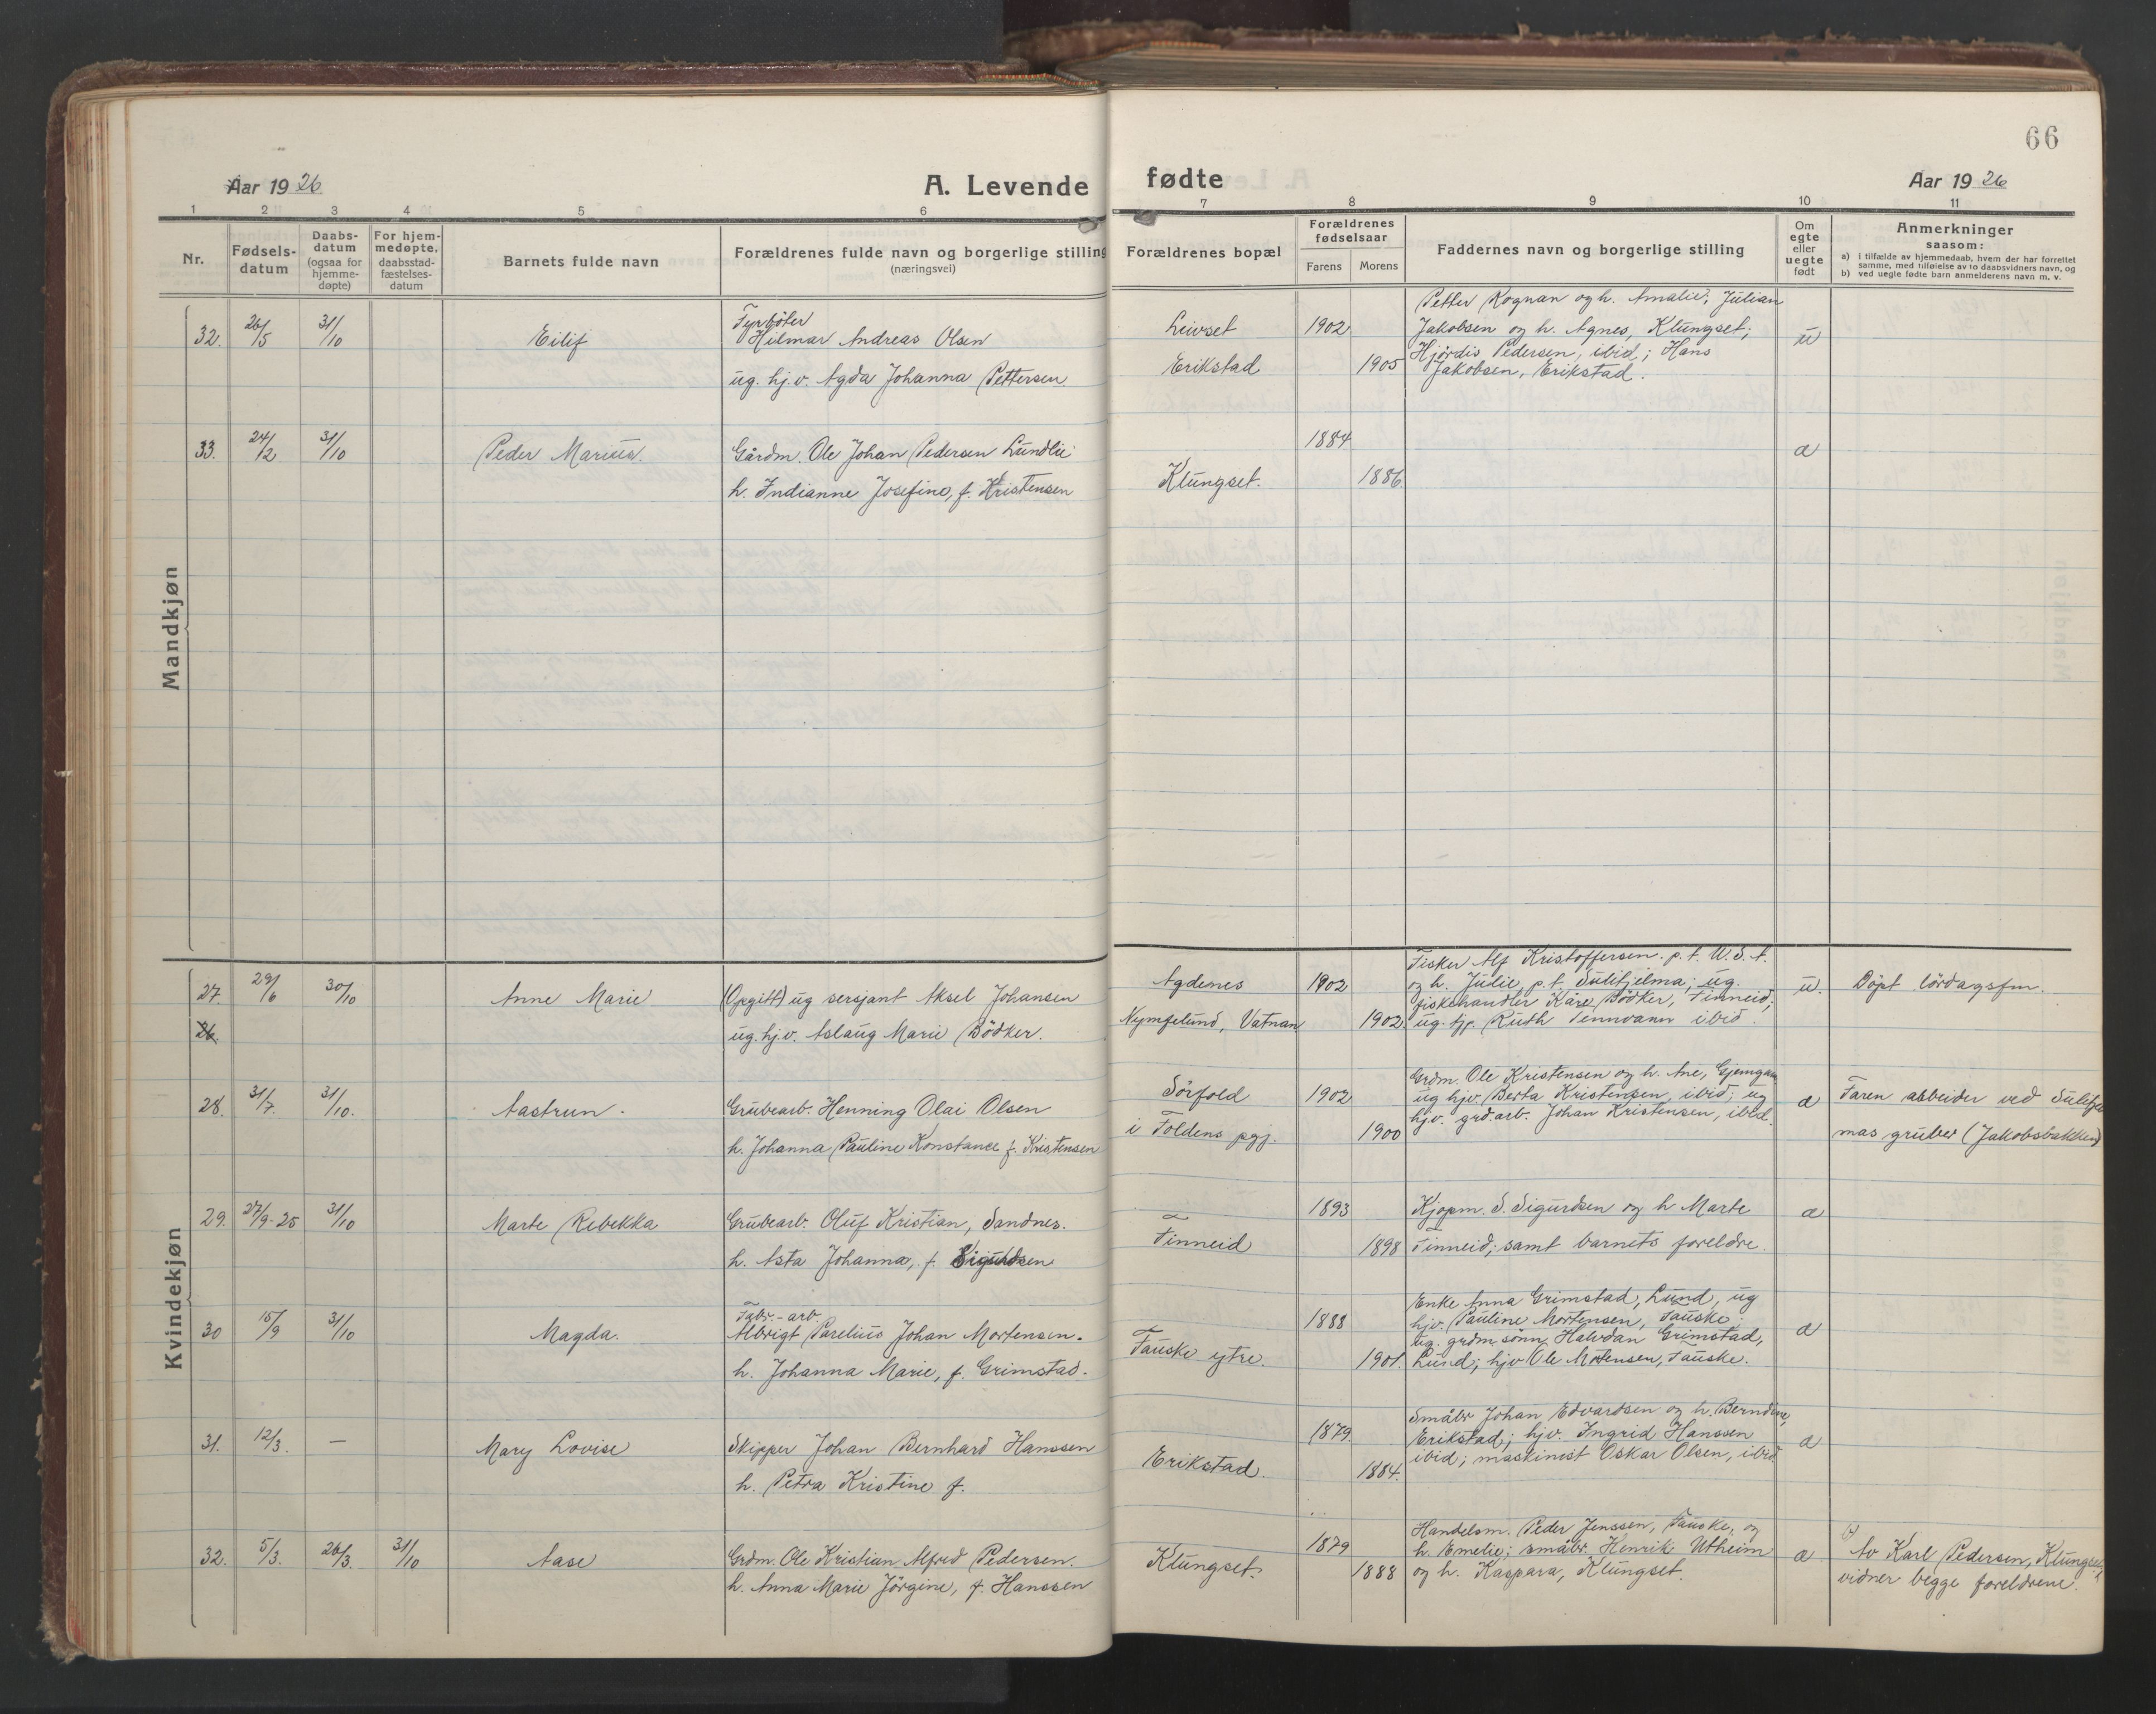 66
Aar 1926
A. Levende fødte
Aar 1926
1 2 3 4 5 6 7 8 9 10 11
Nr.
Fødsels-
datum
Daabs-
datum
(ogsaa for
hjemme-
døpte)
For hjem-
medøpte,
daabsstad-
fæstelses-
datum
Barnets fulde navn
Forældrenes fulde navn og borgerlige stilling
(næringsvei)
Forældrenes bopæl
Forældrenes
fødselsaar
Farens
Morens
Faddernes navn og borgerlige stilling
Om
egte
eller
uegte
født
Anmerkninger
saasom:
a) i tilfælde av hjemmedaab, hvem der har forrettet
samme, med tilføielse av to daabsvidners navn, og
b) ved uegte fødte barn anmelderens navn m. v.
Mandkjøn
32. 26/5 31/10 Eilif
Fyrbøter
Hilmar Andreas Olsen
ug. hj.v. Agda Johanna Pettersen
Leivset 1902
Erikstad 1905
Petter Rognan og h. Amalie; Julian
Jakobsen og h. Agnes, Klungset;
Hjørdis Pedersen, ibid; Hans
Jakobsen, Erikstad.
u
33. 24/2 31/10 Peder Marius.
Gårdm. Ole Johan Pedersen Lundlie
h. Indianne Josefine, f. Kristensen
1884
Klungset. 1886.
a
Kvindekjøn
27. 29/6 30/10 Anne Marie
26.
(Opgitt) ug sersjant Aksel Johansen
ug. hj.v. Aslaug Marie Bödker.
Agdenes 1902
Nymfelund, Vatnan 1902
Fisker Alf Kristoffersen. p. t. U.S.A.
og h. Julie, p. t. Sulitjelma; ug.
fiskehandler Kåre Bödker, Finneid;
ug. tjp. Ruth Tennvann ibid.
u.
Döpt lördagsfm.
28. 31/7. 31/10. Aastrun.
Grubearb. Henning Olai Olsen
h. Johanna Pauline Konstance f. Kristensen
Sörfold 1902
i Foldens pgj. 1900
Grdm. Ole Kristensen og h. Ane, Gjemgam
ug hjv. Berta Kristensen, ibid; ug
hjv. grd.arb. Johan Kristensen, ibid.
a
Faren arbeider ved Sulitjel
mas gruber (Jakobsbakken)
29. 27/9-25 31/10 Marte Rebekka
Grubearb. Oluf Kristian, Sandnes.
h. Asta Johanna, f. Sigurdsen
1893
Finneid 1898
Kjøpm. S. Sigurdsen og h Marte
Finneid; samt barnets foreldre.
a
30 15/9 31/10 Magda.
Fabr.-arb.
Albrigt Parelius Johan Mortensen.
h. Johanna Marie, f. Grimstad.
1888
Fauske ytre. 1901.
Enke Anna Grimstad, Lund, ug
hjv. Pauline Mortensen, Fauske;
ug. grdm sönn Halvdan Grimstad,
Lund; hjv Ole Mortensen, Fauske.
a
31. 12/3. — Mary Lovise
Skipper Johan Bernhard Hanssen
h. Petra Kristine f.
1879.
Erikstad. 1884.
Småbr Johan Edvardsen og h. Berndine,
Erikstad; hjv. Ingrid Hanssen
ibid; maskinist Oskar Olsen, ibid.
a
32. 5/3. 26/3. 31/10 Aase
Grdm. Ole Kristian Alfred Pedersen.
h. Anna Marie Jörgine, f. Hanssen
1879
Klungset. 1888
Handelsm. Peder Jenssen, Fauske, og
h. Emelie; småbr. Henrik Utheim
og h. Kaspara, Klungset.
a
Av Karl Pedersen, Klungset
vidner begge foreldrene.